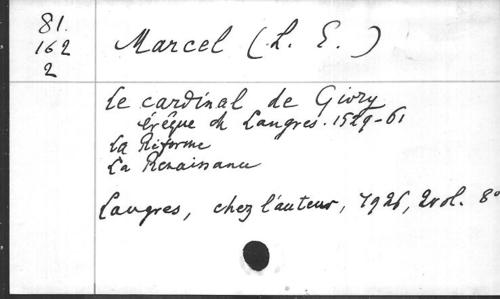 81.
162
2
Marcel (L. E.)
Le cardinal de Givry
évêque de Langres. 1529-61
La Réforme
La Renaissance
Langres, chez l'auteur, 1926, 2 vol. 8°